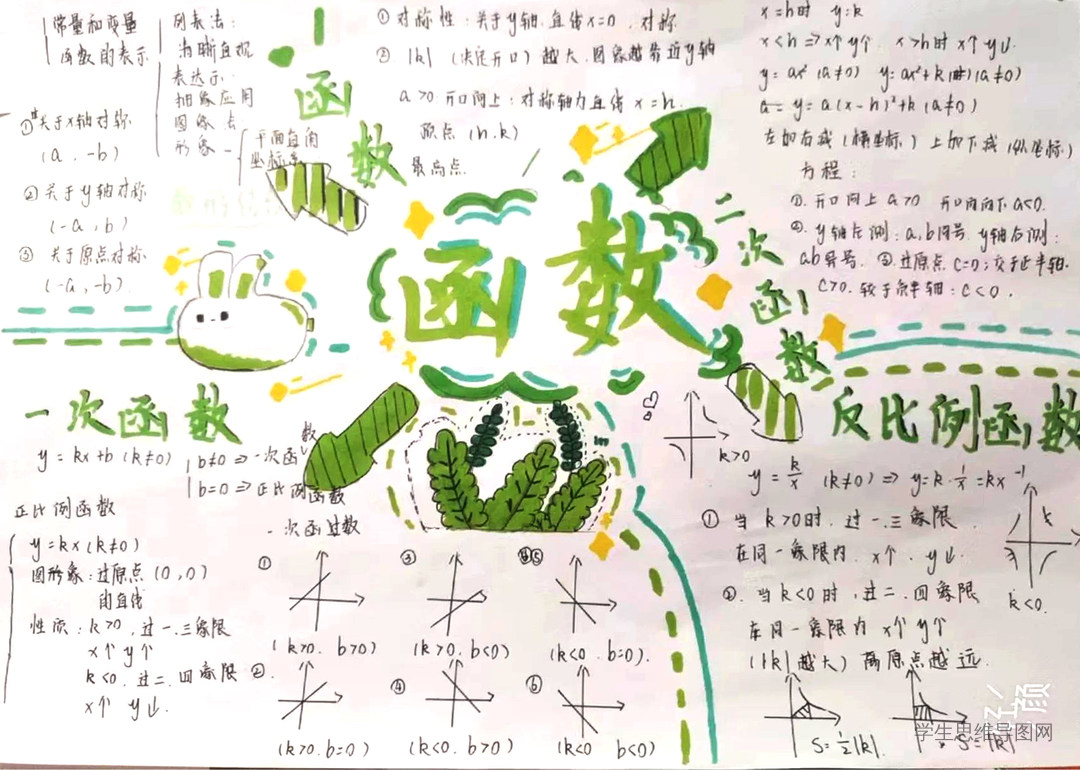 常量和变量
函数的表示
列表法：
清晰直观
表达示：
抽象应用
图像法
形象一
平面直角
坐标系
①关于x轴对称
(a , -b)
②关于y轴对称
(-a , b)
③ 关于原点对称
(-a , -b)
函数
① 对称性：关于y轴.直线x=0 . 对称
② |k| (决定开口) 越大.图象越靠近y轴
a>0 开口向上：对称轴为直线 x=h.
顶点 (h.k)
最高点
x=h时 y=k
x<h => x个 y个. x>h时 x个 y↓.
y=ax² (a≠0) y=ax²+k (a≠0)
a= y=a(x-h)²+k (a≠0)
左加右减 (横坐标) 上加下减 (纵坐标)
方程：
①. 开口向上 a>0 开口向下 a<0.
②. y轴左侧：a,b同号. y轴右侧：
ab异号. ③.过原点 c=0；交于正半轴.
c>0. 较于负半轴：c<0.
函数
二次函数
一次函数
y=kx+b (k≠0)
b≠0 => 一次函数
b=0 => 正比例函数
正比例函数
y=kx (k≠0)
图形象：过原点 (0,0)
的直线
性质：k>0 , 过一.三象限
x↑ y↑
k<0. 过二.四象限
x↑ y↓.
一次函过数
① ③ ⑤
(k>0. b>0) (k>0. b<0) (k<0. b=0).
② ④ ⑥
(k>0. b=0) (k<0. b>0) (k<0 b<0)
反比例函数
k>0
y=k/x (k≠0) => y=k·1/x=kx⁻¹
① 当 k>0时. 过一.三象限
在同一象限内. x↑. y↓.
k
k<0.
②. 当k<0时, 过二.四象限
在同一象限内 x个 y个
(|k|越大) 离原点越远.
S=½|k|. S=|k|
学生思维导图网